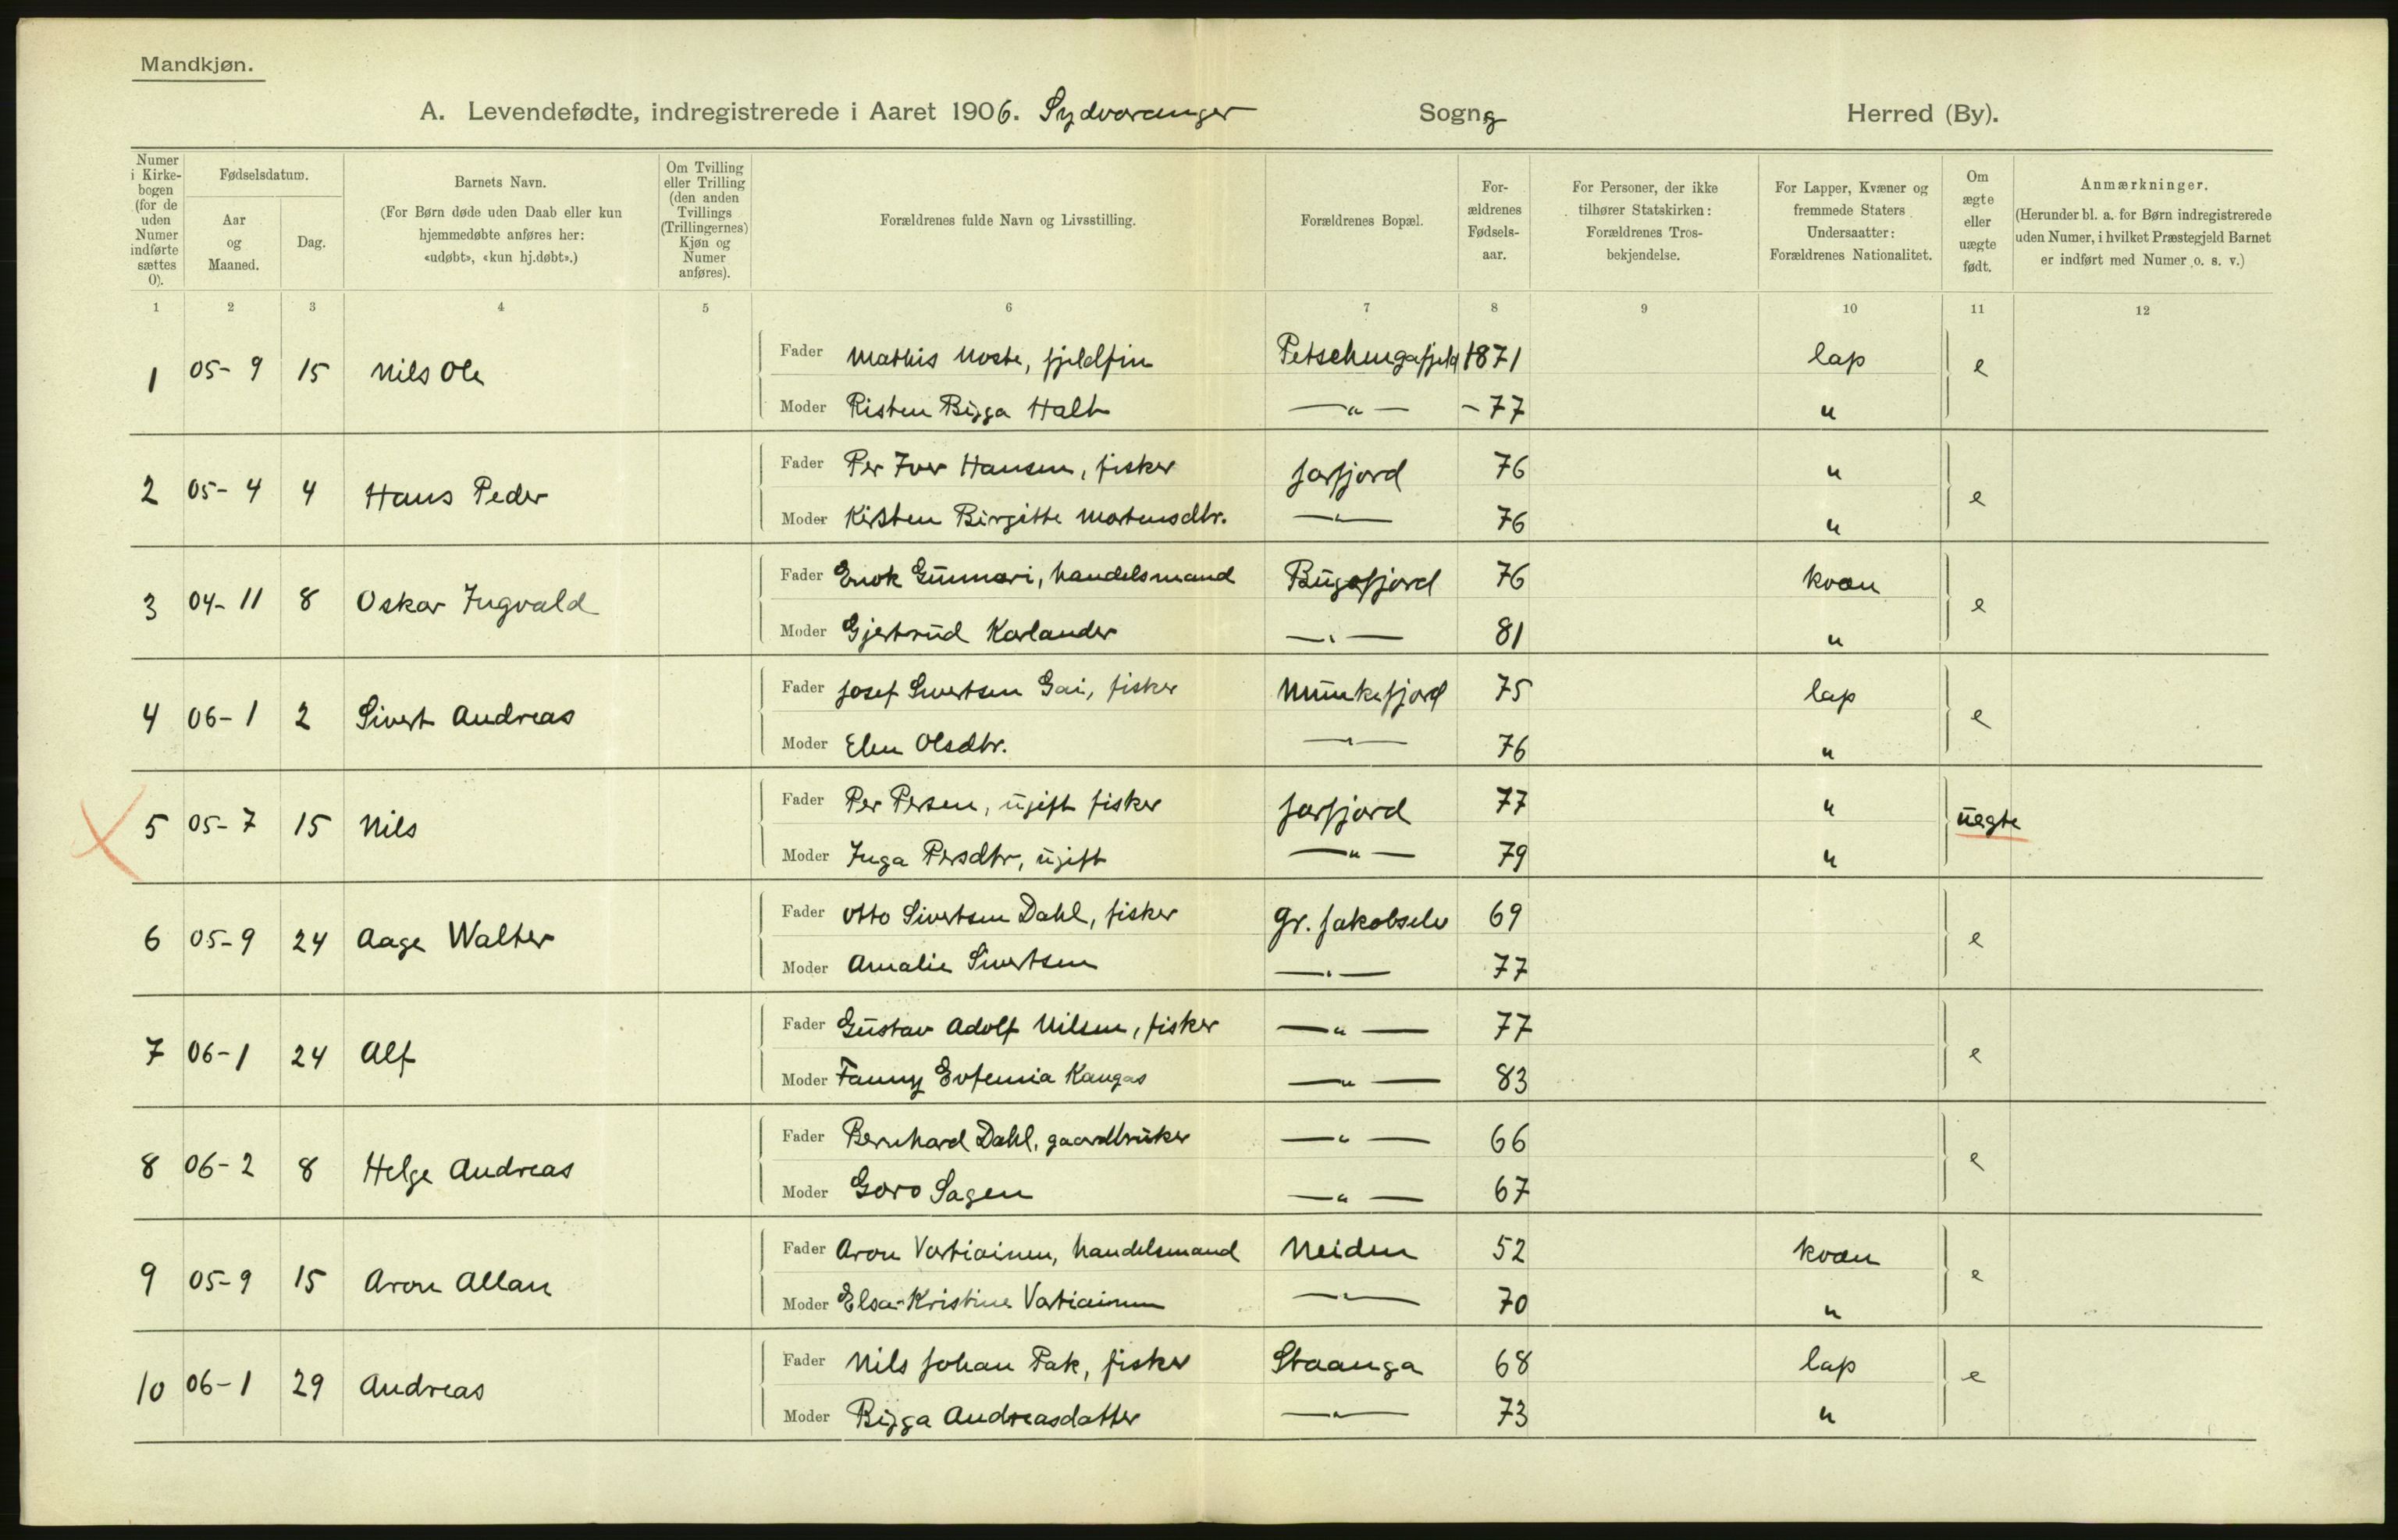 Mandkjøn.
A. Levendefødte, indregistrerede i Aaret 1906. Sydvaranger Sogn g Herred (By).
Numer i Kirkebogen (for de uden Numer indførte sættes 0).
Fødselsdatum.
Aar og Maaned.
Dag.
Barnets Navn.
(For Børn døde uden Daab eller kun hjemmedøbte anføres her: «udøbt», «kun hj.døbt».)
Om Tvilling eller Trilling (den anden Tvillings (Trillingernes) Kjøn og Numer anføres).
Forældrenes fulde Navn og Livsstilling.
Forældrenes Bopæl.
Forældrenes Fødselsaar.
For Personer, der ikke tilhører Statskirken: Forældrenes Trosbekjendelse.
For Lapper, Kvæner og fremmede Staters Undersaatter: Forældrenes Nationalitet.
Om ægte eller uægte født.
Anmærkninger.
(Herunder bl. a. for Børn indregistrerede uden Numer, i hvilket Præstegjeld Barnet er indført med Numer o. s. v.)
1 2 3 4 5 6 7 8 9 10 11 12
1 05-9 15 Nils Ole
Fader Mathis Noste, fjeldfin Petschengafjeld 1871 lap e
Moder Risten Bigga Halt —"— -77 "
2 05-4 4 Hans Peder
Fader Per Iver Hansen, fisker Jarfjord 76 " e
Moder Kirsten Birgitte Mortensdtr. —"— 76 "
3 04-11 8 Oskar Ingvald
Fader Enok Gunnari, handelsmand Bugøfjord 76 kvæn e
Moder Gjertrud Karlander —"— 81 "
4 06-1 2 Sivert Andreas
Fader Josef Sivertsen Gai, fisker Munkefjord 75 lap e
Moder Elen Olsdtr. —"— 76 "
5 05-7 15 Nils
Fader Per Persen, ugift fisker Jarfjord 77 " uegte
Moder Inga Persdtr, ugift —"— 79 "
6 05-9 24 Aage Walter
Fader Otto Sivertsen Dahl, fisker Gr. Jakobselv 69 e
Moder Amalie Sivertsen —"— 77
7 06-1 24 Alf
Fader Gustav Adolf Nilsen, fisker —"— 77 e
Moder Fanny Evfemia Kangas —"— 83
8 06-2 8 Helge Andreas
Fader Bernhard Dahl, gaardbruker —"— 66 e
Moder Goro Sagen —"— 67
9 05-9 15 Aron Allan
Fader Aron Vartiainen, handelsmand Neiden 52 kvæn e
Moder Elsa-Kristine Vartiainen —"— 70 "
10 06-1 29 Andreas
Fader Nils Johan Pak, fisker Staanga 68 lap e
Moder Bigga Andreasdatter —"— 73 "